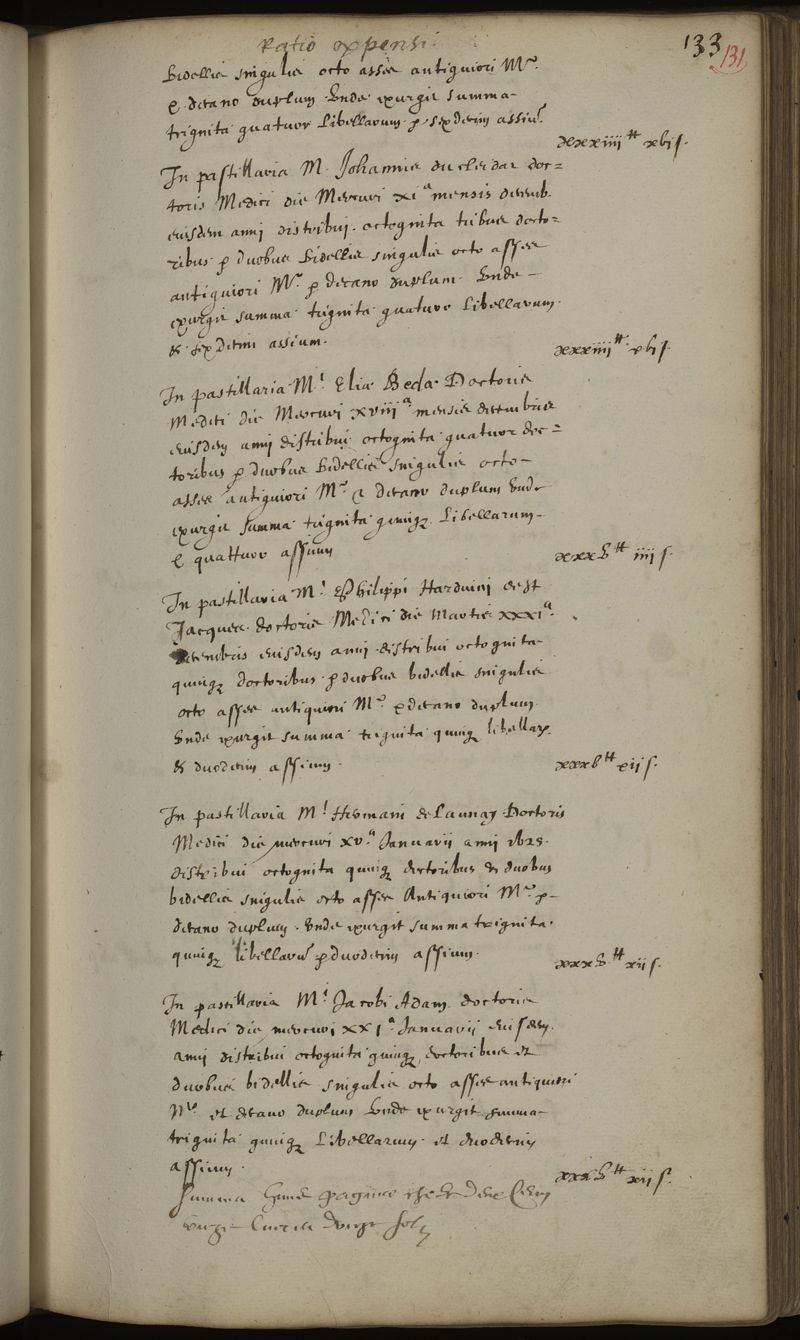 Ratio expensi.
133
131
Bidellis singulis octo asses antiquiori Mro
& decano duplum Unde exurgit summa
trignita quatuor libellarum & sexdecim assiū.
xxxiiii ₶ xvi s.
In pastillaria M. Johannis du cledat doc=
toris Medici die Mercuri xi a mensis decemb.
eiusdem anni distribui octognita tribus docto=
ribus & duobus bidellis singulis octo asses
antiquiori Mro & decano duplum. Unde
exurgit summa trignita quatuor libellarum
& sexdecim assium.
xxxiiii ₶ xvi s.
In pastillaria Mi Eliæ Beda Doctoris
Medici die Mercuri xviii a mensis decembris
eiusdem anni distribui octognita quatuor doc=
toribus & duobus bidellis singulis octo
asses antiquiori Mro & decano duplum Unde
exurgit summa trignita quinq; libellarum
& quattuor assium
xxxv ₶ iiii s.
In pastillaria Mi Philippi Harduini de st
Jacques doctoris Medici die Martis xxxi a
decembris eiusdem anni distribui octognita
quinq; doctoribus & duobus bidellis singulis
octo asses antiquiori Mro & decano duplum
Unde exurgit summa trignita quinq; libellarꝫ
& duodecim assium.
xxxv ₶ xii s.
In pastillaria Mi Hermani de Launay Doctoris
Medici die mercuri xv. a Januarii anni 1625.
distribui octognita quinq; doctoribus & duobus
bidellis singulis octo asses Antiquiori Mro &
decano duplum. Unde exurgit summa trignita
quinq; libellarū & duodecim assium.
xxxv ₶ xii s.
In pastillaria Mi Jacobi Adam doctoris
Medici die mercuri xxi a Januarii eiusdem
anni distribui octognita quinq; doctoribus et
duobus bidellis singulis octo asses antiquiori
Mro et decano duplum Unde exurgit summa
trignita quinq; libellarum et duodecim
assium.
xxxv ₶ xii s.
Summa huius paginæ